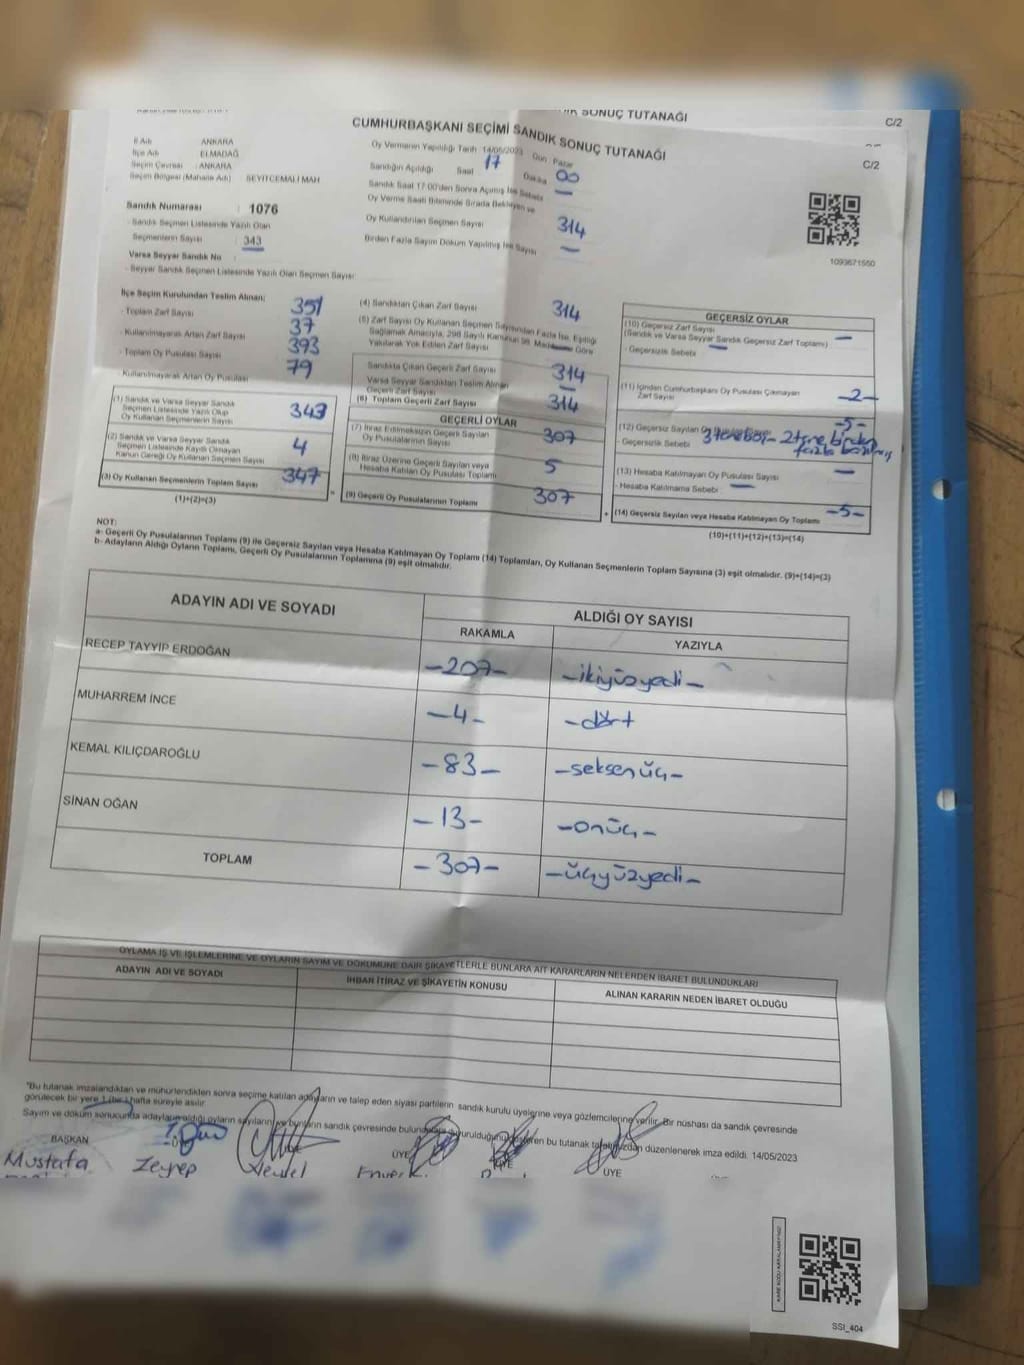 SONUÇ TUTANAĞI
C/2
CUMHURBAŞKANI SEÇİMİ SANDIK SONUÇ TUTANAĞI
C/2
İl Adı ANKARA
İlçe Adı ELMADAĞ
Seçim Çevresi : ANKARA
Seçim Bölgesi (Mahalle Adı) SEYİTCEMALİ MAH
Sandık Numarası : 1076
Sandık Seçmen Listesinde Yazılı Olan
Seçmenlerin Sayısı : 343
Varsa Seyyar Sandık No
- Seyyar Sandık Seçmen Listesinde Yazılı Olan Seçmen Sayısı
Oy Vermenin Yapıldığı Tarih 14/05/2023 Gün Pazar
Sandığın Açıldığı Saat 17 Dakika 00
Sandık Saat 17:00'den Sonra Açılmış İse Sebebi —
Oy Verme Saati Bitiminde Sırada Bekleyen ve
Oy Kullandırılan Seçmen Sayısı 314
Birden Fazla Sayım Döküm Yapılmış İse Sayısı —
1093671550
İlçe Seçim Kurulundan Teslim Alınan:
- Toplam Zarf Sayısı 351
- Kullanılmayarak Artan Zarf Sayısı 37
- Toplam Oy Pusulası Sayısı 393
- Kullanılmayarak Artan Oy Pusulası 79
(1) Sandık ve Varsa Seyyar Sandık
Seçmen Listesinde Yazılı Olup
Oy Kullanan Seçmenlerin Sayısı 343
(2) Sandık ve Varsa Seyyar Sandık
Seçmen Listesinde Kayıtlı Olmayan
Kanun Gereği Oy Kullanan Seçmen Sayısı 4
(3) Oy Kullanan Seçmenlerin Toplam Sayısı 347
(1)+(2)=(3)
(4) Sandıktan Çıkan Zarf Sayısı 314
(5) Zarf Sayısı Oy Kullanan Seçmen Sayısından Fazla İse, Eşitliği
Sağlamak Amacıyla, 298 Sayılı Kanunun 98. Maddesine Göre
Yakılarak Yok Edilen Zarf Sayısı
Sandıkta Çıkan Geçerli Zarf Sayısı 314
Varsa Seyyar Sandıktan Teslim Alınan
Geçerli Zarf Sayısı —
(6) Toplam Geçerli Zarf Sayısı 314
GEÇERLİ OYLAR
(7) İtiraz Edilmeksizin Geçerli Sayılan
Oy Pusulalarının Sayısı 307
(8) İtiraz Üzerine Geçerli Sayılan veya
Hesaba Katılan Oy Pusulalarının Toplamı 5
(9) Geçerli Oy Pusulalarının Toplamı 307
GEÇERSİZ OYLAR
(10) Geçersiz Zarf Sayısı
(Sandık ve Varsa Seyyar Sandık Geçersiz Zarf Toplamı) —
- Geçersizlik Sebebi —
(11) İçinden Cumhurbaşkanı Oy Pusulası Çıkmayan
Zarf Sayısı -2-
(12) Geçersiz Sayılan Oy Pusulası Sayısı -5-
- Geçersizlik Sebebi 3 tane boş - 2 tane birden
fazla basılmış
(13) Hesaba Katılmayan Oy Pusulası Sayısı —
- Hesaba Katılmama Sebebi —
(14) Geçersiz Sayılan veya Hesaba Katılmayan Oy Toplamı -5-
(10)+(11)+(12)+(13)=(14)
NOT:
a- Geçerli Oy Pusulalarının Toplamı (9) ile Geçersiz Sayılan veya Hesaba Katılmayan Oy Toplamı (14) Toplamları, Oy Kullanan Seçmenlerin Toplam Sayısına (3) eşit olmalıdır. (9)+(14)=(3)
b- Adayların Aldığı Oyların Toplamı, Geçerli Oy Pusulalarının Toplamına (9) eşit olmalıdır.
ADAYIN ADI VE SOYADI ALDIĞI OY SAYISI
RAKAMLA YAZIYLA
RECEP TAYYİP ERDOĞAN -207- -ikiyüzyedi-
MUHARREM İNCE -4- -dört
KEMAL KILIÇDAROĞLU -83- -seksenüç-
SİNAN OĞAN -13- -onüç-
TOPLAM -307- -üçyüzyedi-
OYLAMA İŞ VE İŞLEMLERİNE VE OYLARIN SAYIM VE DÖKÜMÜNE DAİR ŞİKAYETLERLE BUNLARA AİT KARARLARIN NELERDEN İBARET BULUNDUKLARI
ADAYIN ADI VE SOYADI İHBAR İTİRAZ VE ŞİKAYETİN KONUSU ALINAN KARARIN NEDEN İBARET OLDUĞU
*Bu tutanak imzalandıktan ve mühürlendikten sonra seçime katılan adayların ve talep eden siyasi partilerin sandık kurulu üyelerine veya gözlemcilerine verilir. Bir nüshası da sandık çevresinde
görülecek bir yere 1 (bir) hafta süreyle asılır.
Sayım ve döküm sonucunda adayların aldığı oyların sayılarını ve bunların sandık çevresinde bulunduğunu gösteren bu tutanak düzenlenerek imza edildi. 14/05/2023
BAŞKAN ÜYE ÜYE ÜYE
Mustafa Zeynep
KARE KODU KARALAMAYINIZ!
SSI_404